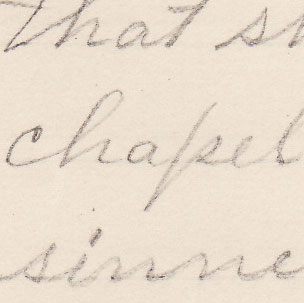 that sh
chapel
sinne